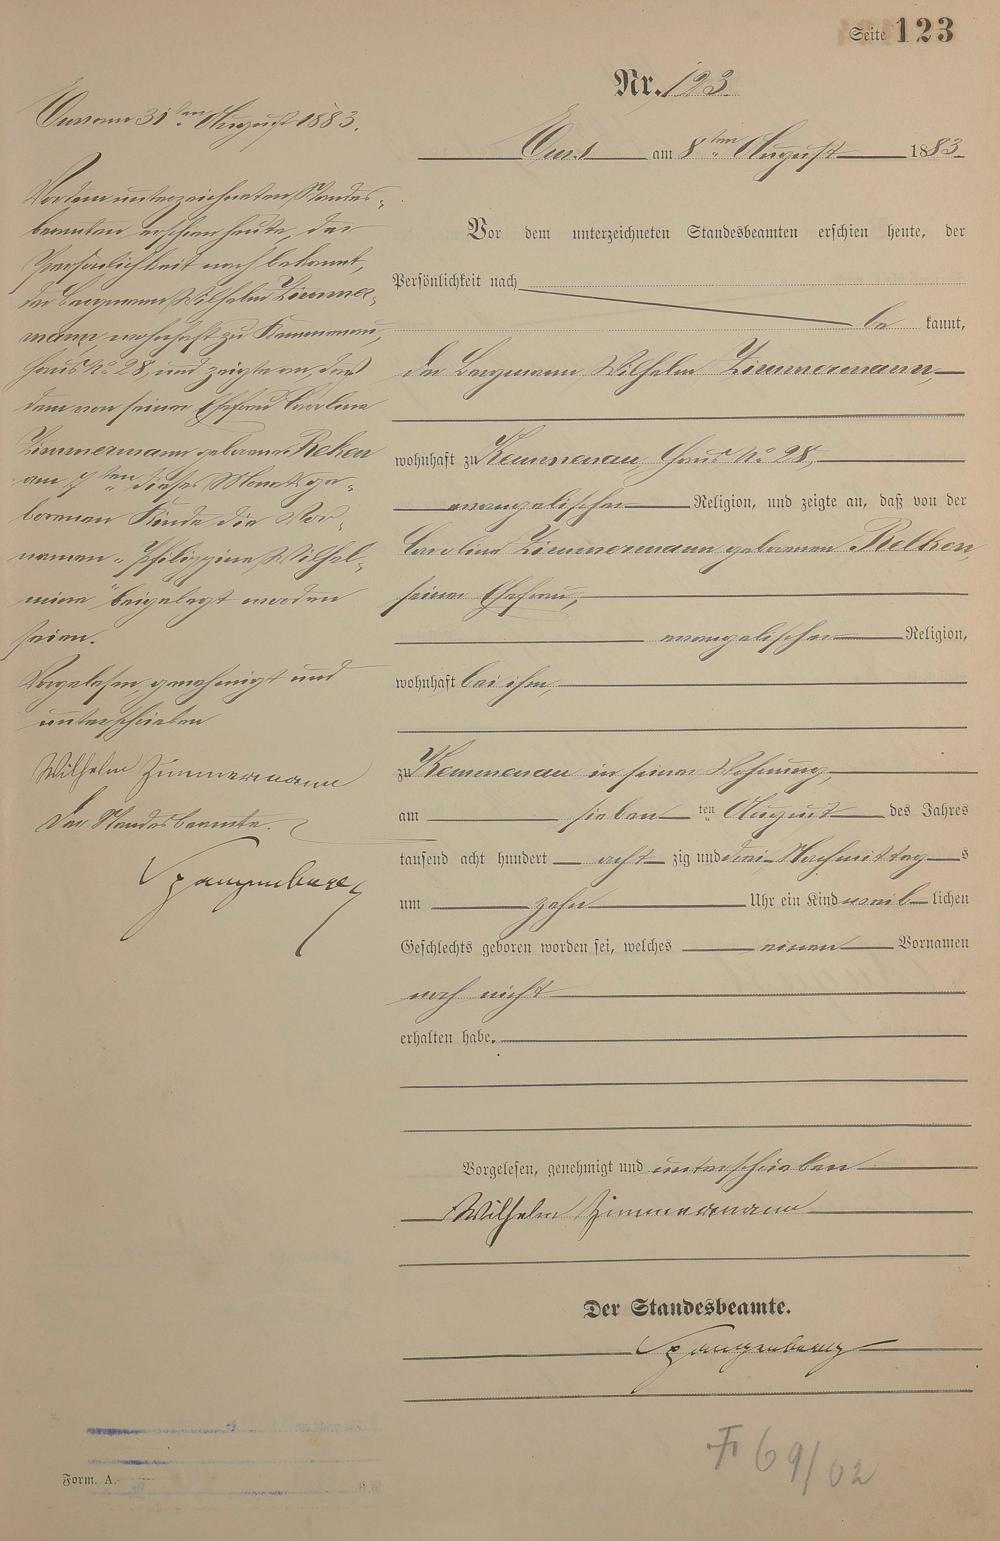 Seite 123
Nr. 123
Ems am 8ten August 1883
Vor dem unterzeichneten Standesbeamten erschien heute, der
Persönlichkeit nach
be kannt,
der Bergmann Wilhelm Zimmermann,
wohnhaft zu Kemmenau Haus No 28,
evangelischer Religion, und zeigte an, daß von der
Caroline Zimmermann geborenen
seiner Ehefrau,
evangelischer Religion,
wohnhaft bei ihm,
zu Kemmenau in seiner Wohnung,
am sieben ten August des Jahres
tausend acht hundert acht zig und drei Nachmittag s
um zehn Uhr ein Kind weib lichen
Geschlechts geboren worden sei, welches einen Vornamen
noch nicht
erhalten habe.
Vorgelesen, genehmigt und unterschrieben
Wilhelm Zimmermann
Der Standesbeamte.
Spangenberg
Ems am 31ten August 1883.
Vor dem unterzeichneten Standes-
beamten erschien heute, der
Persönlichkeit nach bekannt,
der Bergmann Wilhelm Zimmer-
mann, wohnhaft zu Kemmenau,
Haus No 28, und zeigte an, daß
dem von seiner Ehefrau Caroline
Zimmermann geborenen
am 7ten dieses Monats ge-
borenen Kinde die Vor-
namen "Philippine Wilhel-
mine" beigelegt worden
seien.
Vorgelesen, genehmigt und
unterschrieben
Wilhelm Zimmermann
Der Standesbeamte.
Spangenberg
Form. A.
F 69/02